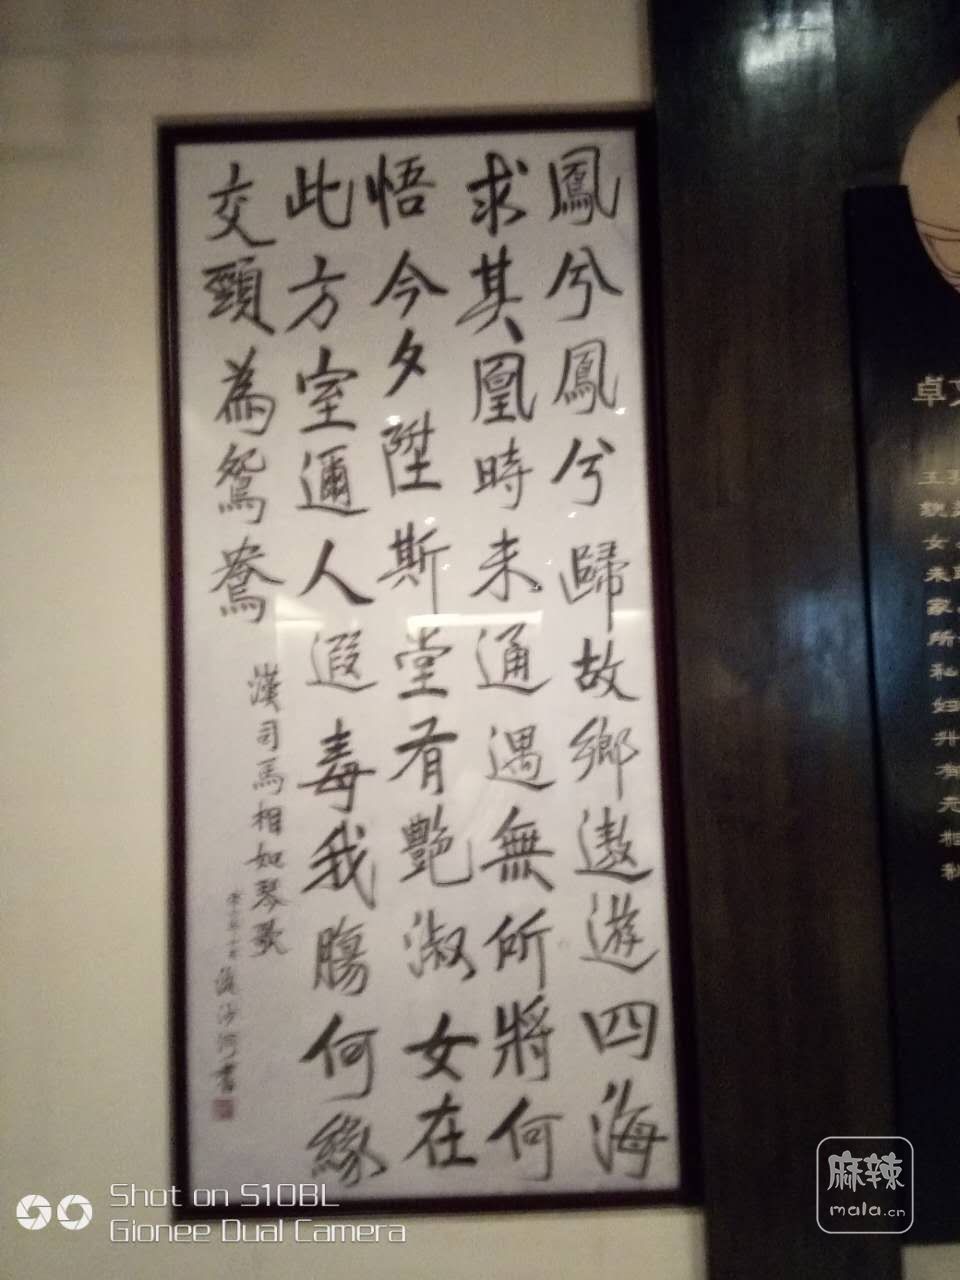 鳳兮鳳兮歸故鄉遨遊四海
求其凰時未通遇無所將何
悟今夕陞斯堂有艷淑女在
此方室邇人遐毒我腸何緣
交頸為鴛鴦
漢司馬相如琴歌
流沙河書
卓文
王
女未
家所
私
妇
升
有
相
Shot on S10BL
Gionee Dual Camera
麻辣
mala.cn